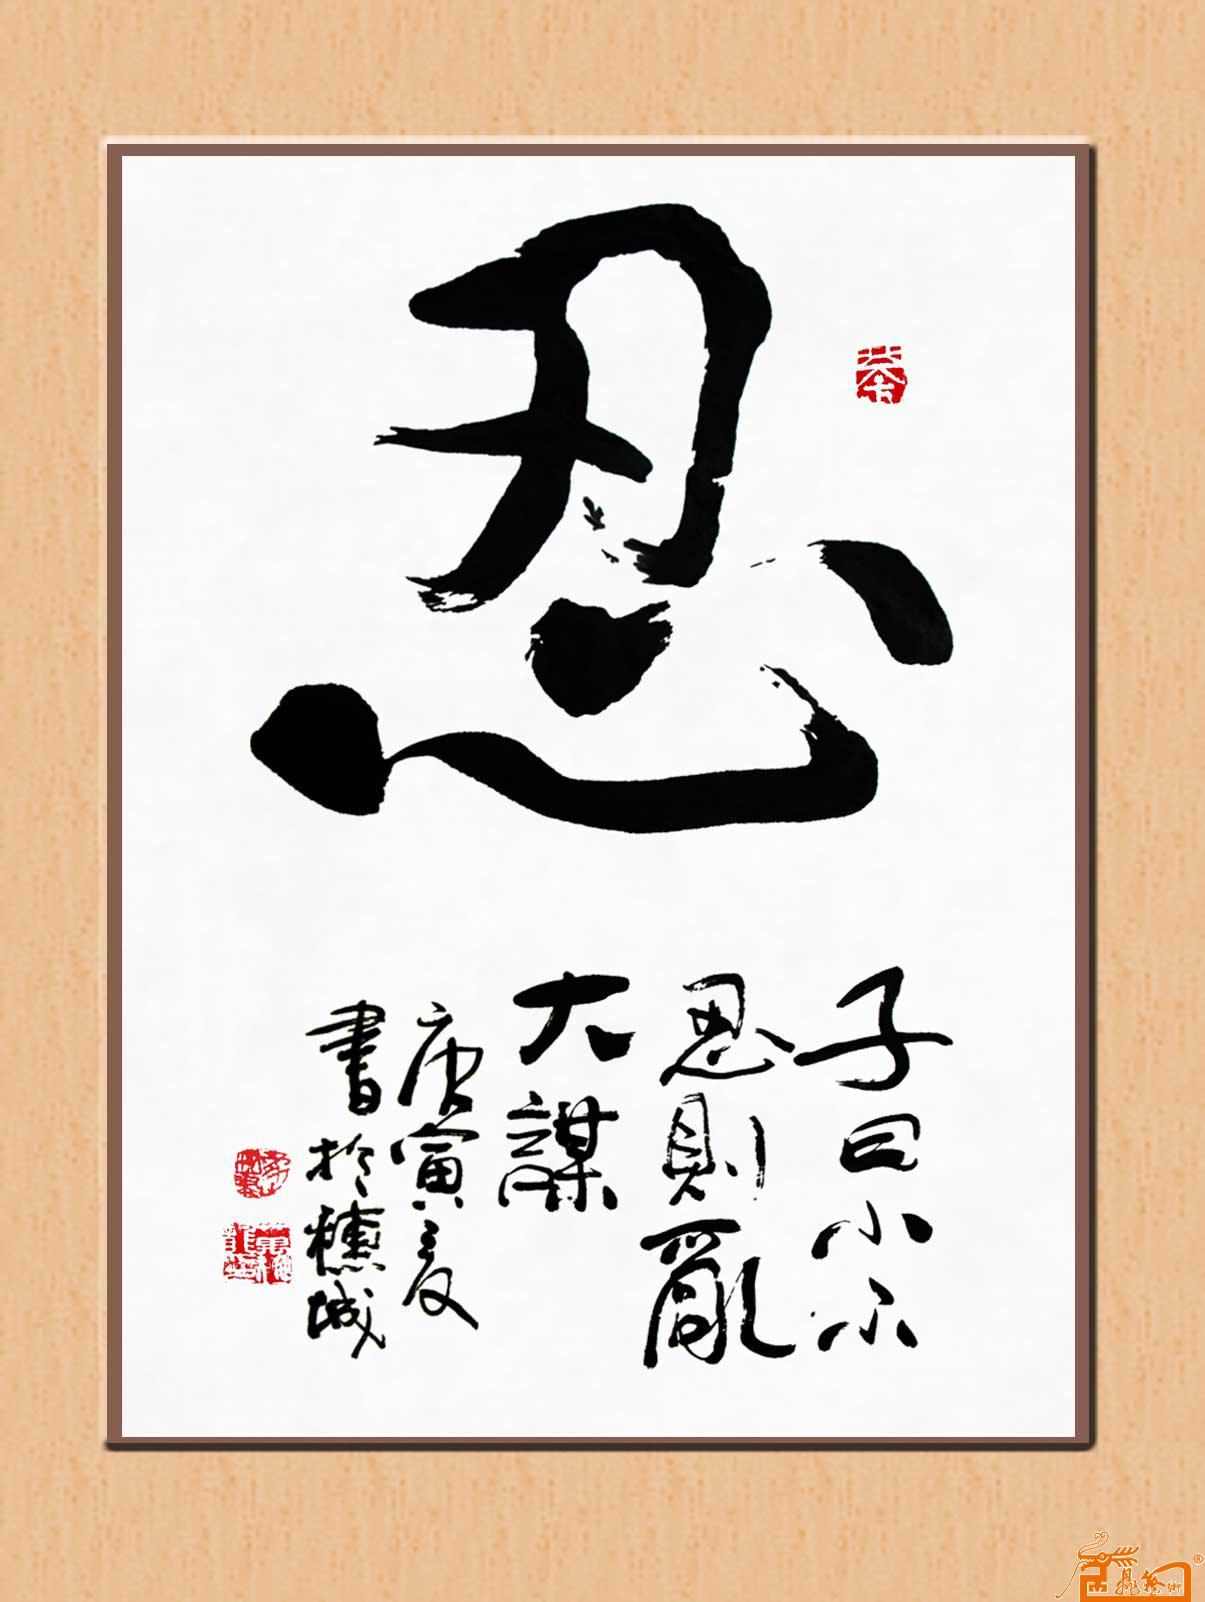 忍
子曰小不
忍則亂
大謀
庚寅夏
書於穗城